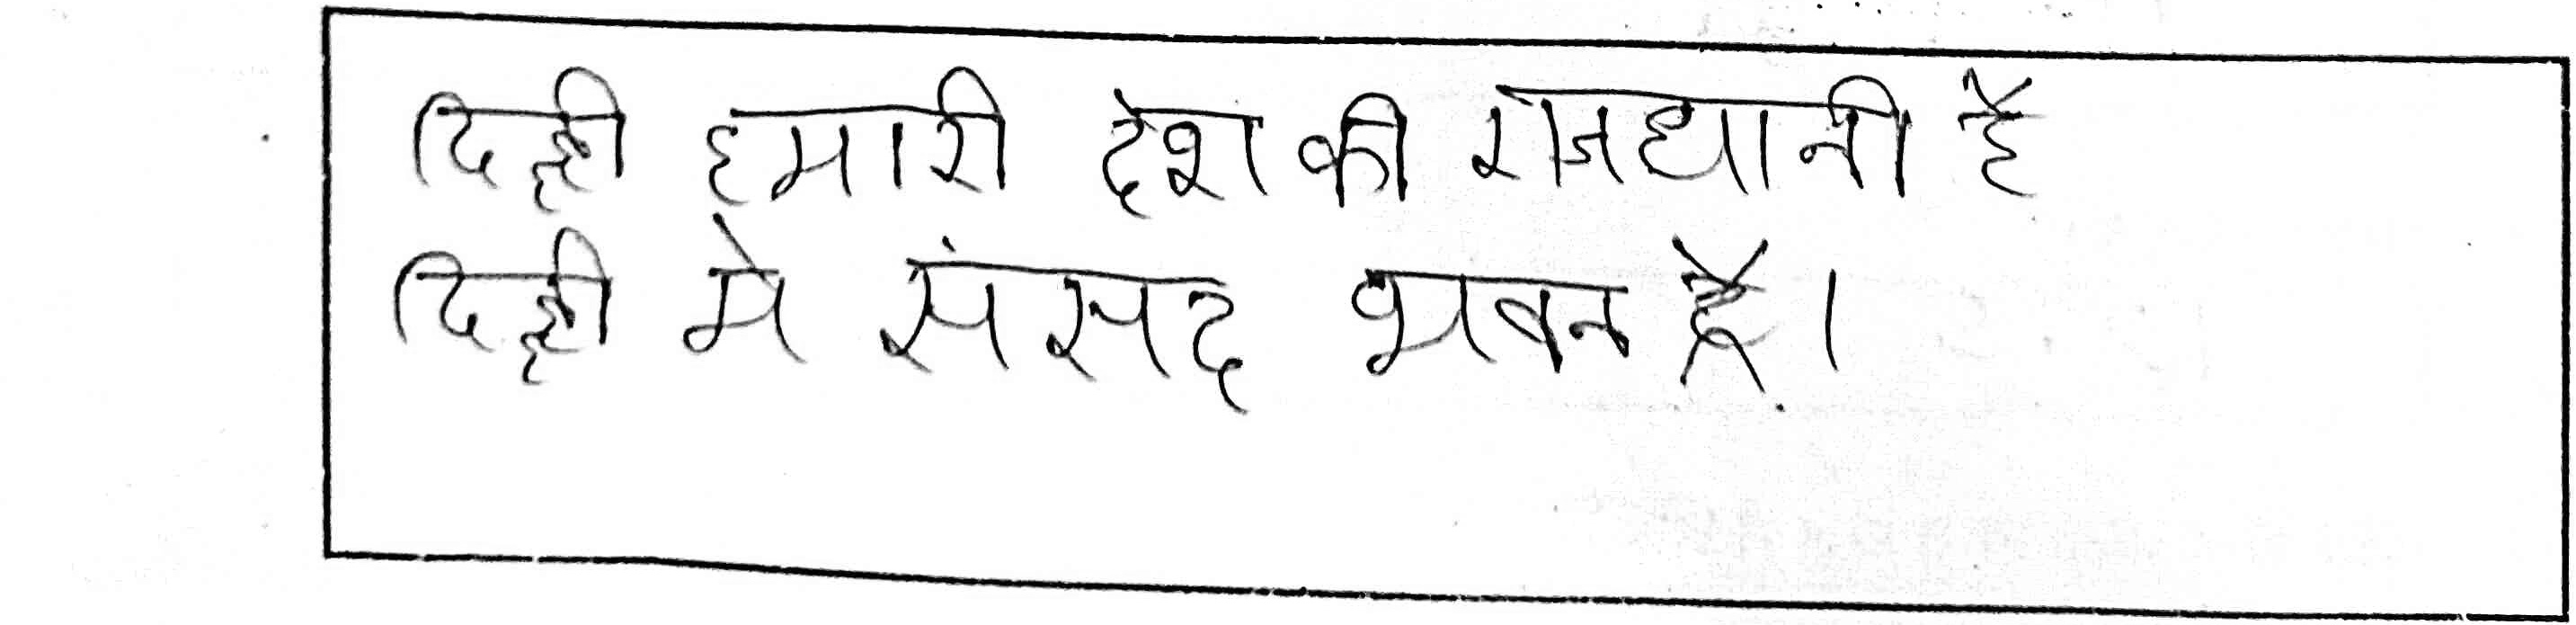 दिल्ली हमारी देश की राजधानी है
दिल्ली मे संसद भवन है।